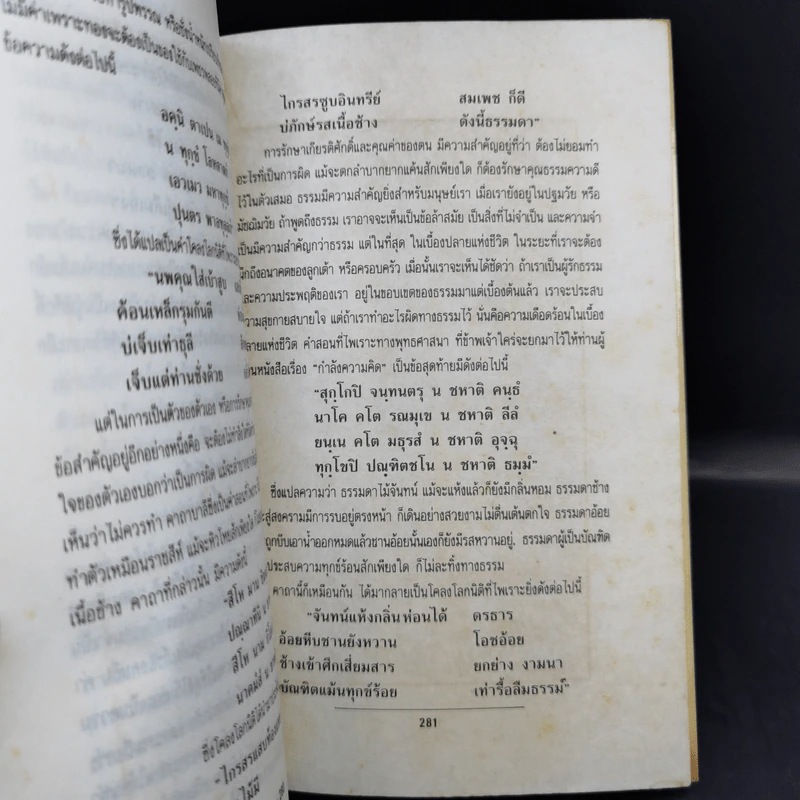 ข้อความดังต่อไปนี้
อคฺนิ ตาเปน น
น ทุกฺขํ
เอวเมว
ปุนตร
ซึ่งได้แปลเป็นคำโคลงโลกนิติ
"นพคุณใส่เบ้าสูบ
ค้อนเหล็กรุมกันตี
บ่เจ็บเท่าธุลี
เจ็บแต่ท่านชั่งด้วย
แต่ในการเป็นตัวของตัวเอง
ข้อสำคัญอยู่อีกอย่างหนึ่งคือ จะต้องไม่ทำ
ใจของตัวเองบอกว่าเป็นการผิด
เห็นว่าไม่ควรทำ
ทำตัวเหมือนราชสีห์
เนื้อช้าง คาถาที่กล่าวนั้น มีความดังนี้
"สีโห นาม
สีโห นาม
ซึ่งโคลงโลกนิติได้
"ไกรสร
ไม้มี
ไกรสรซูบอินทรีย์ สมเพช ก็ดี
บ่ภักษ์รสเนื้อช้าง ดังนี้ธรรมดา"
การรักษาเกียรติศักดิ์และคุณค่าของตน มีความสำคัญอยู่ที่ว่า ต้องไม่ยอมทำ
อะไรที่เป็นการผิด แม้จะตกลำบากยากแค้นสักเพียงใด ก็ต้องรักษาคุณธรรมความดี
ไว้ในตัวเสมอ ธรรมมีความสำคัญยิ่งสำหรับมนุษย์เรา เมื่อเรายังอยู่ในปฐมวัย หรือ
มัชฌิมวัย ถ้าพูดถึงธรรม เราอาจจะเห็นเป็นข้อล้าสมัย เป็นสิ่งที่ไม่จำเป็น และความจำ
เป็นมีความสำคัญกว่าธรรม แต่ในที่สุด ในเบื้องปลายแห่งชีวิต ในระยะที่เราจะต้อง
นึกถึงอนาคตของลูกเต้า หรือครอบครัว เมื่อนั้นเราจะเห็นได้ชัดว่า ถ้าเราเป็นผู้รักธรรม
และความประพฤติของเรา อยู่ในขอบเขตของธรรมมาแต่เบื้องต้นแล้ว เราจะประสบ
ความสุขกายสบายใจ แต่ถ้าเราทำอะไรผิดทางธรรมไว้ นั่นคือความเดือดร้อนในเบื้อง
ปลายแห่งชีวิต คำสอนที่ไพเราะทางพุทธศาสนา ที่ข้าพเจ้าใคร่จะยกมาไว้ให้ท่านผู้
านหนังสือเรื่อง "กำลังความคิด" เป็นข้อสุดท้ายมีดังต่อไปนี้
"สุกฺโกปิ จนฺทนตรุ น ชหาติ คนฺธํ
นาโค คโต รณมุเข น ชหาติ ลีลํ
ยนฺเน คโต มธุรสํ น ชหาติ อุจฺฉุ
ทุกฺโขปิ ปณฺฑิตชโน น ชหาติ ธมฺมํ"
ซึ่งแปลความว่า ธรรมดาไม้จันทน์ แม้จะแห้งแล้วก็ยังมีกลิ่นหอม ธรรมดาช้าง
สู่สงครามมีการรบอยู่ตรงหน้า ก็เดินอย่างสวยงามไม่ตื่นเต้นตกใจ ธรรมดาอ้อย
ถูกบีบเอาน้ำออกหมดแล้วชานอ้อยนั้นเองก็ยังมีรสหวานอยู่. ธรรมดาผู้เป็นบัณฑิต
ประสบความทุกข์ร้อนสักเพียงใด ก็ไม่ละทิ้งทางธรรม
คาถานี้ก็เหมือนกัน ได้มากลายเป็นโคลงโลกนิติที่ไพเราะยิ่งดังต่อไปนี้
"จันทน์แห้งกลิ่นห่อนได้ ดรธาร
อ้อยหีบชานยังหวาน โอชอ้อย
ช้างเข้าศึกเสี่ยมสาร ยกย่าง งามนา
บัณฑิตแม้นทุกข์ร้อย เท่ารื้อลืมธรรม"
281